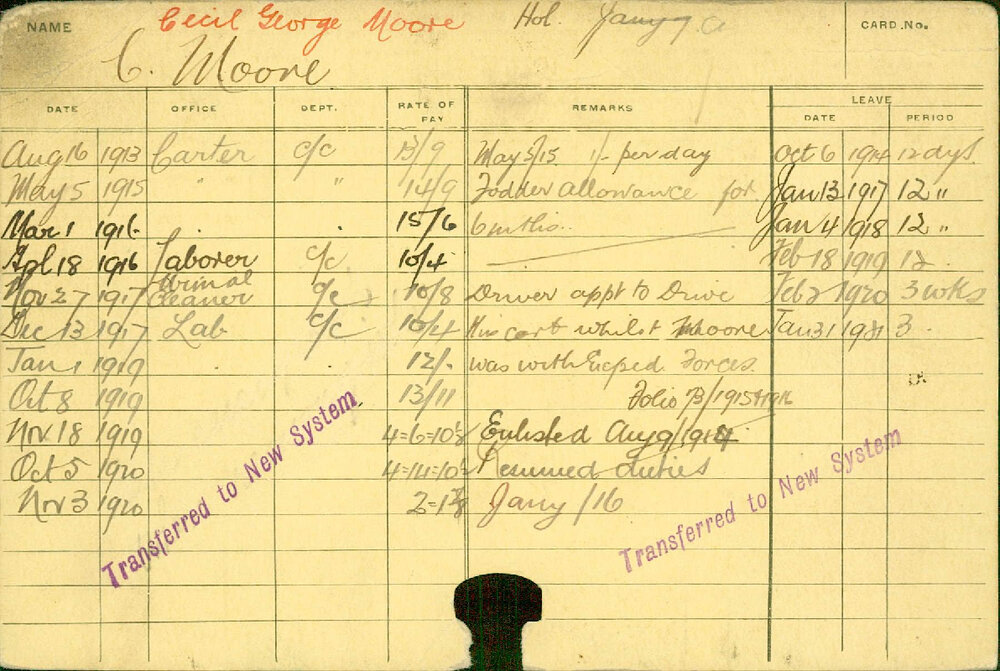 NAME Cecil George Moore Hol. CARD. No.
C. Moore
DATE OFFICE DEPT. RATE OF PAY REMARKS LEAVE
DATE PERIOD
Aug 16 1913 Carter c/c 13/9 May 5/15 1/- per day Oct 6 1914 12 dys.
May 5 1915 " " 14/9 Fodder allowance for Jan 13 1917 12 "
Mar 1 1916. . . 15/6 6 mths. Jan 4 1918 12 "
Apl 18 1916 Laborer c/c 10/4 Feb 18 1919 12
Nov 27 1917 Animal Cleaner c/c 10/8 Driver appt to Drive Feb 2 1920 3 wks
Dec 13 1917 Lab c/c 10/4 His cart whilst Moore Jan 31 1921 3.
Jan 1 1919 12/- was with Exped. Forces.
Oct 8 1919 13/11 Folio 73/1915 + 1916
Nov 18 1919 4=6=10½ Enlisted Aug 1914
Oct 5 1920 4=14=10½ Resumed duties
Nov 3 1920 Jany /16
Transferred to New System
Transferred to New System